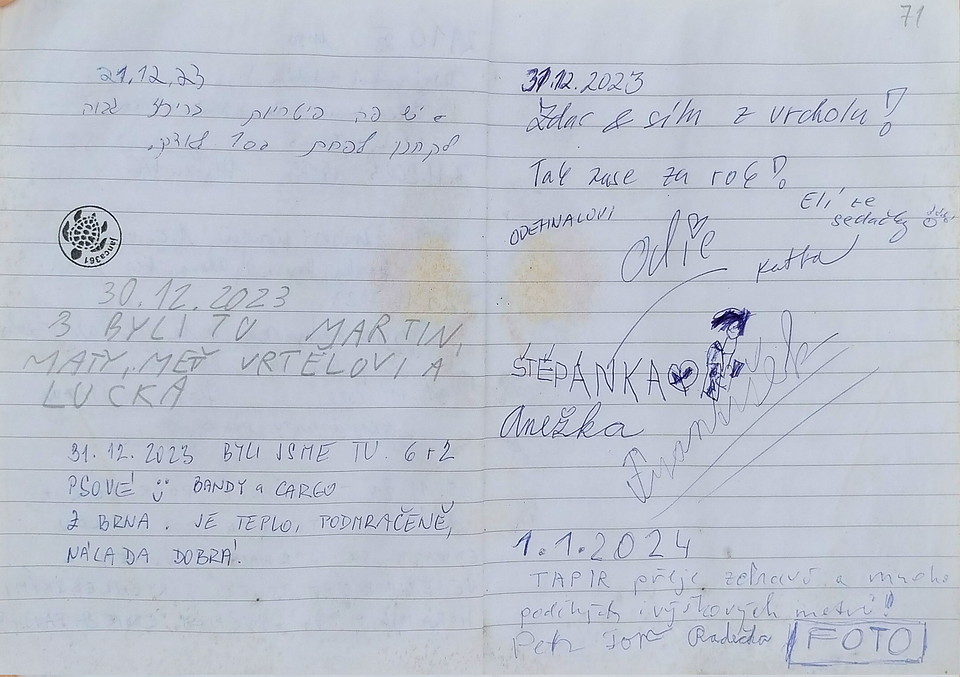 21,12,23
יש פה פיטריות בריבוע גבוה
לקחנו לפחות
janca361
30.12.2023
BYLI TU MARTIN,
MATY, MEĎ VRTĚLOVI A
LUCKA
31.12.2023 BYLI JSME TU 6+2
PSOVÉ BANDY a CARGO
Z BRNA. JE TEPLO, PODMRAČENĚ,
NÁLADA DOBRÁ.
71
31.12.2023
Zdar & sílu z vrcholu!
Tak zase za rok!
Eli ze
sedačky
ODEHNALOVI
Katka
ŠTĚPÁNKA
Anežka
František
1.1.2024
TAPÍR přeje zdraví a mnoho
podélných i výškových metrů!
Petr Radečka
FOTO